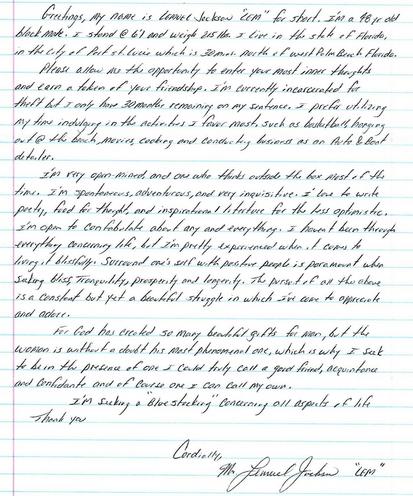 Greetings, my name is Lemuel Jackson "LEM" for short. I'm a 48 yr old
black male. I stand @ 6'1 and weigh 215 lbs. I live in the state of Florida,
in the City of Port St. Lucie which is 30 min. north of West Palm Beach Florida.
Please allow me the opportunity to enter your most inner thoughts
and earn a token of your friendship. I'm currently incarcerated for
theft but I only have 30 months remaining on my sentence. I prefer utilizing
my time indulging in the activities I favor most, such as basketball, hanging
out @ the beach, movies, cooking and conducting business as an Auto & Boat
detailer.
I'm very open-minded and one who thinks outside the box most of the
time. I'm spontaneous, adventurous, and very inquisitive. I love to write
poetry, food for thought, and inspirational literature for the less optimistic.
I'm open to confabulate about any and everything. I haven't been through
everything concerning life, but I'm pretty experienced when it comes to
living it blissfully. Surround one's self with positive people is paramount when
seeking bliss, tranquility, prosperity and longevity. The pursuit of all the above
is a constant but yet a beautiful struggle in which I've come to appreciate
and adore.
For God has created so many beautiful gifts for man, but the
woman is without a doubt his most phenomenal one, which is why I seek
to be in the presence of one I could truly call a good friend, acquaintance
and confidante and of course one I can call my own.
I'm seeking a "Blue stocking" concerning all aspects of life
Thank you
Cordially,
Mr. Lemuel Jackson "LEM"